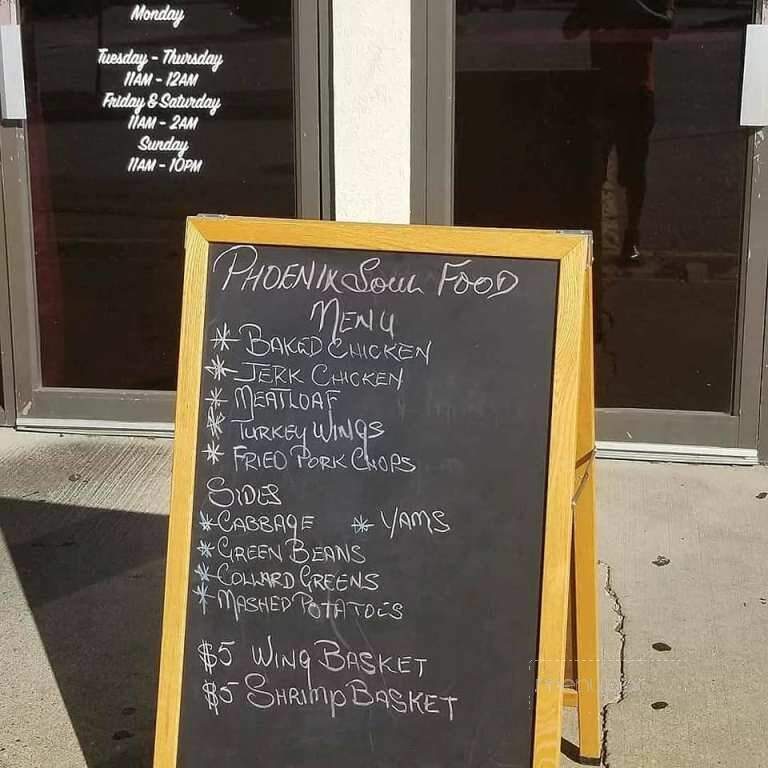 Monday
Tuesday - Thursday
11AM - 12AM
Friday & Saturday
11AM - 2AM
Sunday
11AM - 10PM
PHOENIX SOUL FOOD
MENU
* BAKED CHICKEN
* JERK CHICKEN
* MEATLOAF
* TURKEY WINGS
* FRIED PORK CHOPS
SIDES
* CABBAGE * YAMS
* GREEN BEANS
* COLLARD GREENS
* MASHED POTATOES
$5 WING BASKET
$5 SHRIMP BASKET